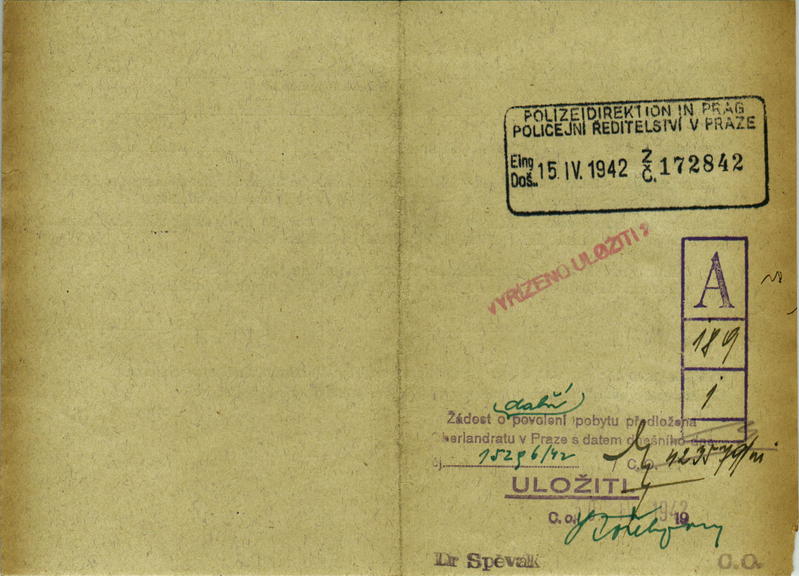 POLIZEIDIREKTION IN PRAG
POLICEJNÍ ŘEDITELSTVÍ V PRAZE
Eing. Doš. 15. IV. 1942 Z Č. 172842
VYŘÍZENO ULOŽITI
A
189
1
další
Žádost o povolení pobytu předložena
berlandratu v Praze s datem dnešního dne
čj. 15296/42 C.O.
ULOŽITI
C. o. 1942 19
Dr Spěvák C.O.